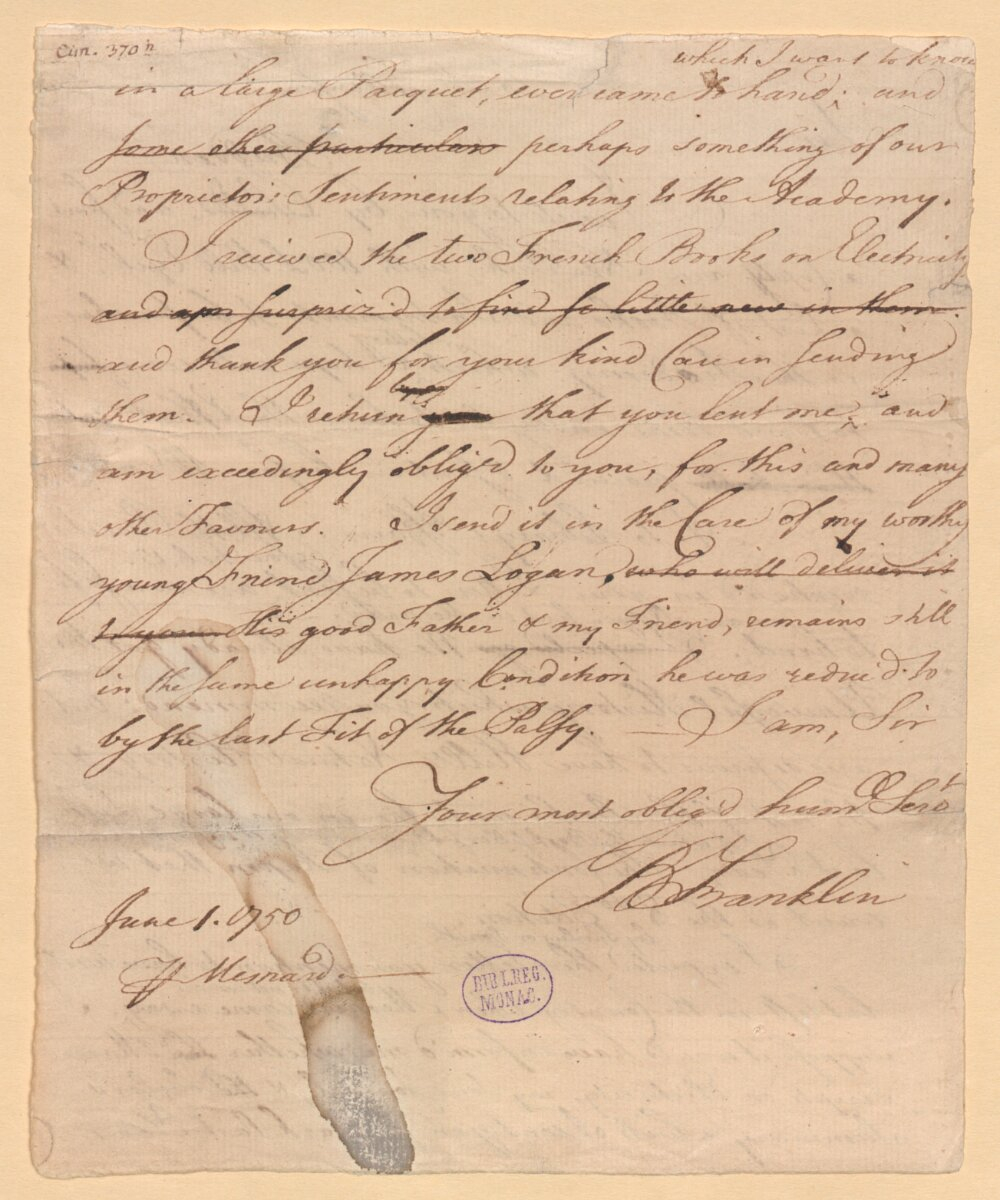 Cim. 370 n
which I want to know
in a large Pacquet, ever came to hand; and
some other particulars perhaps something of our
Proprietor's Sentiments relating to the Academy.
I received the two French Books on Electricity
and am surpriz'd to find so little new in them.
and thank you for your kind Care in sending
them. I return that you lent me; and
am exceedingly oblig'd to you, for this and many
other Favours. I send it in the Care of my worthy
young Friend James Logan, who will deliver it
to you His good Father & my Friend, remains still
in the same unhappy Condition he was reduc'd to
by the last Fit of the Palsy. — I am, Sir
Your most oblig'd hum Serv
B Franklin
June 1. 1750
Mesnard. —
BIBL. REG.
MONAC.